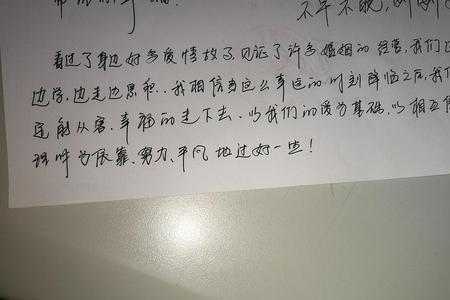 不早不晚,刚刚
看过了身边好多爱情故事,见证了许多婚姻的经营,我们
边学,边走边思和..我相信当这么幸运的时刻降临之后,我们
定能从容.幸福的走下去.以我们的爱为基础,以相互
理呼为依靠.努力、平凡地过好一些!